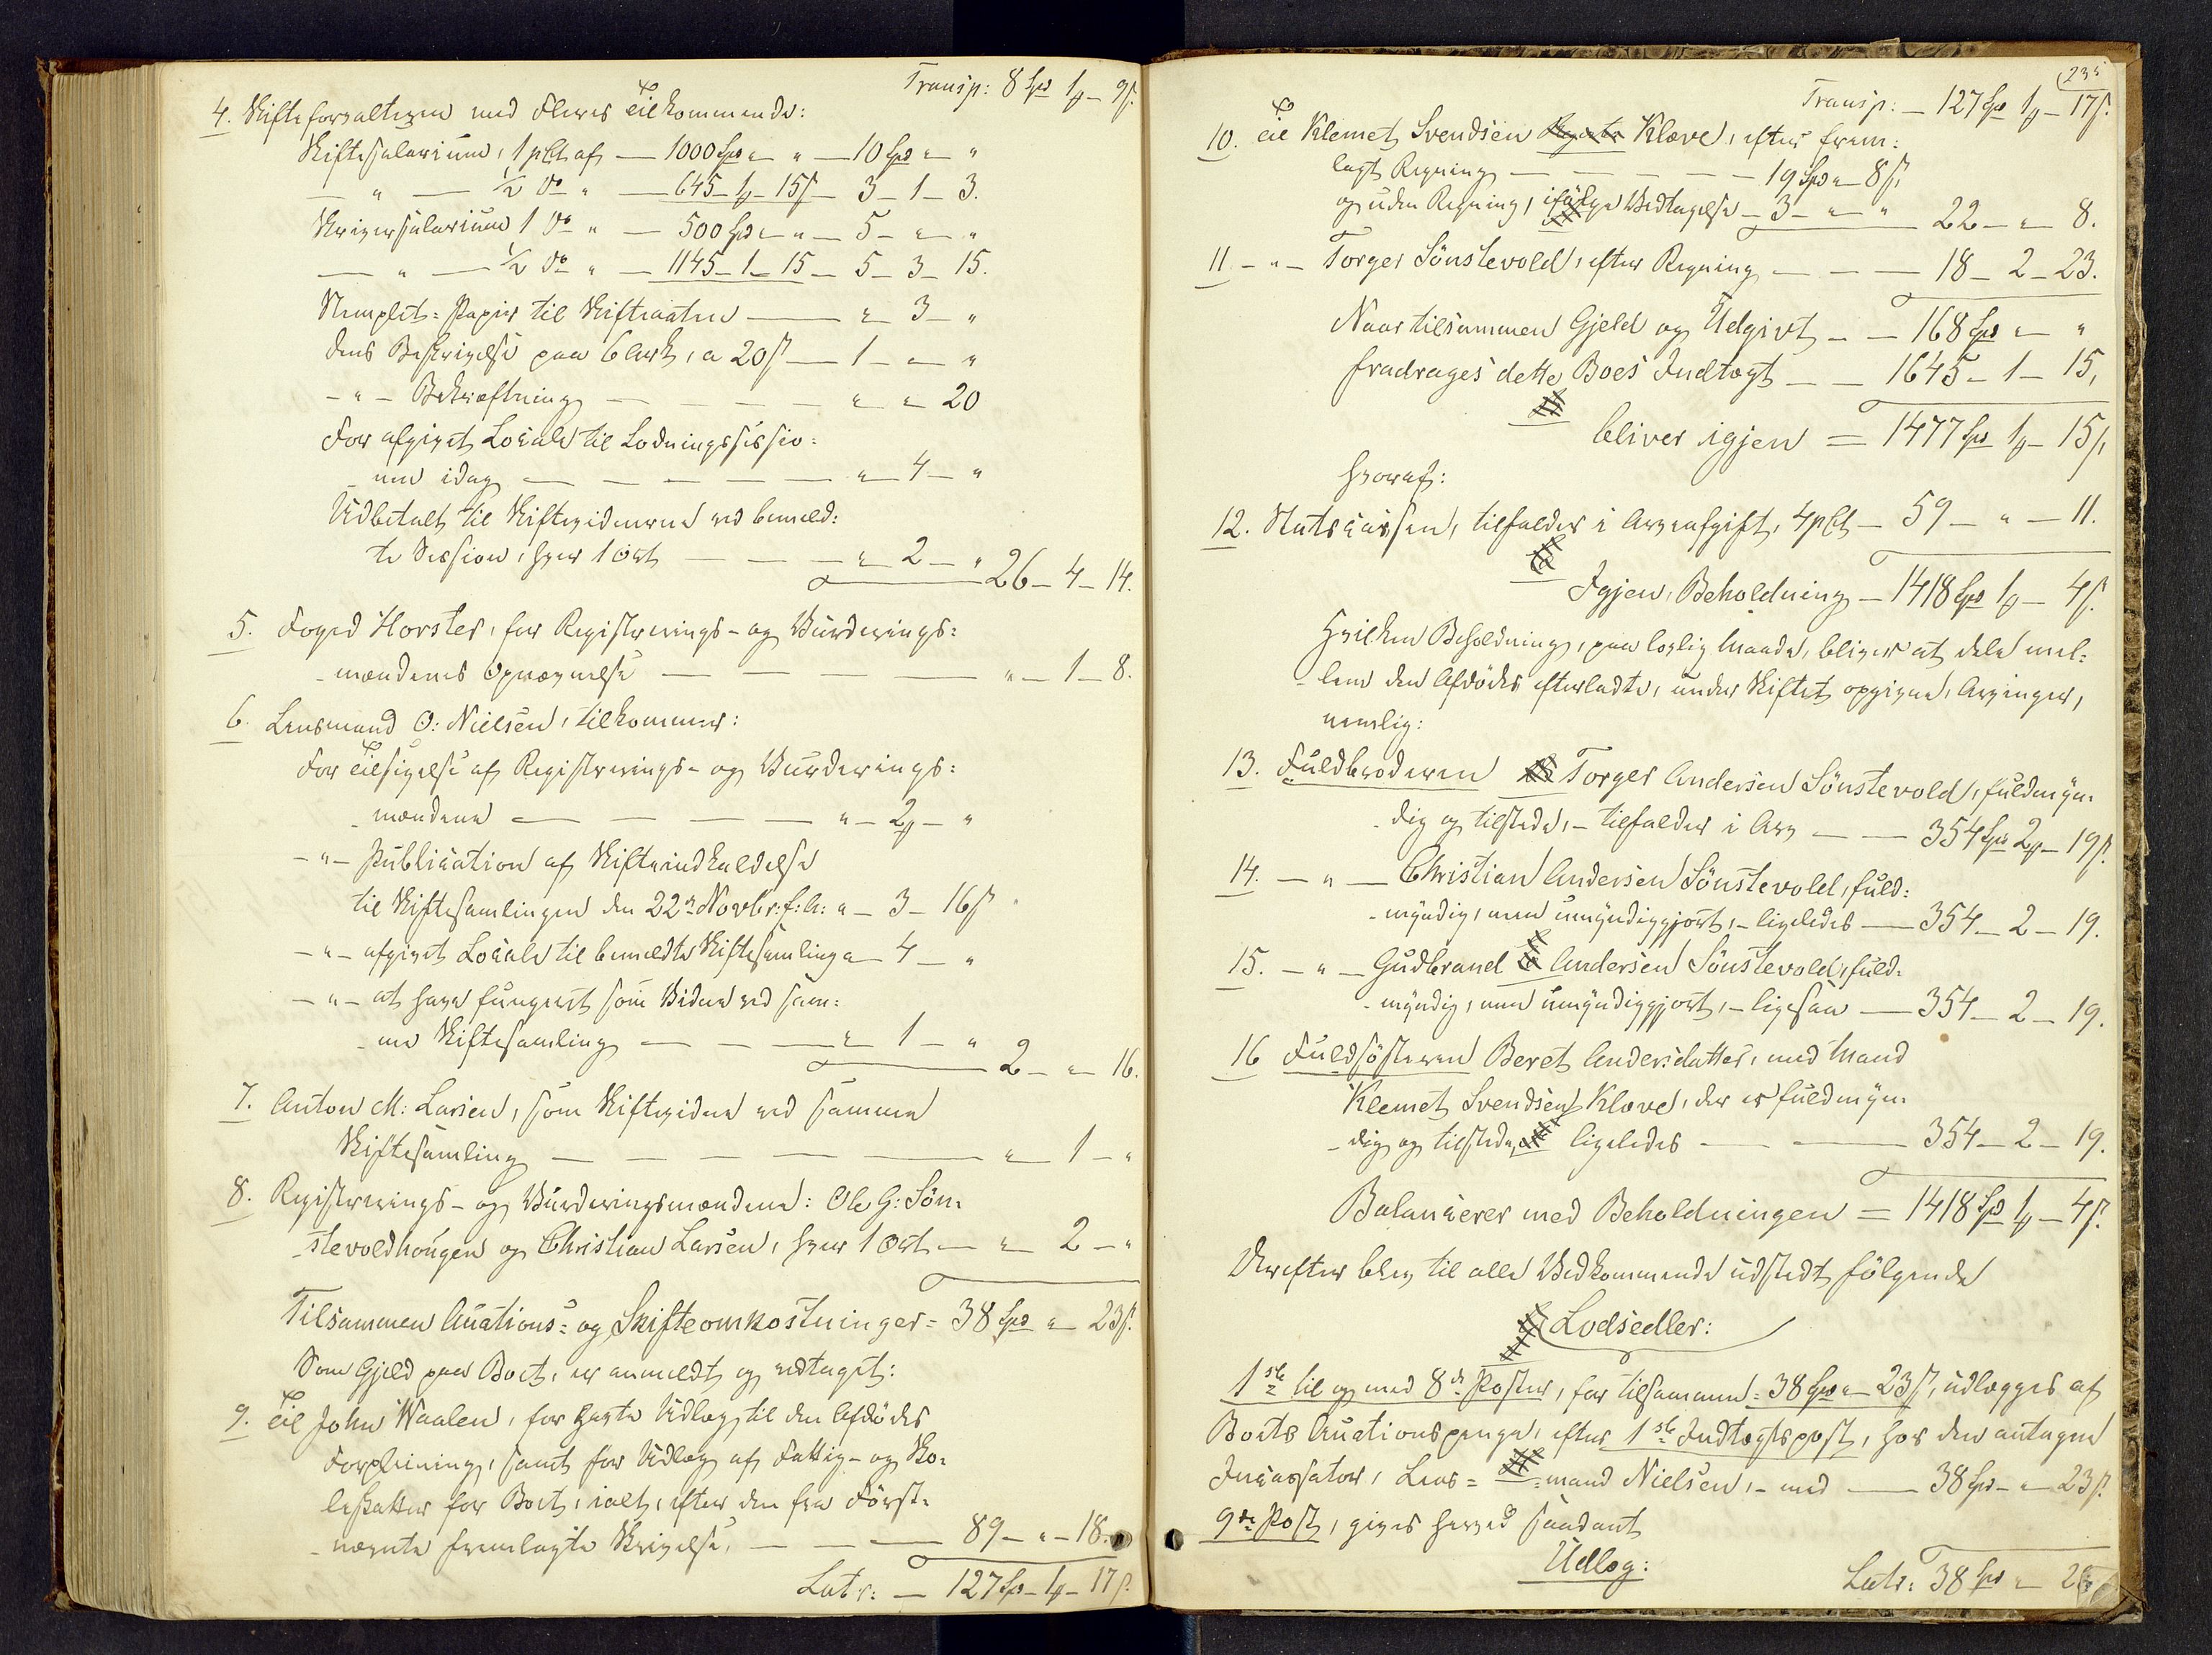 Transp: 8 Spd 1 ₰ - 9 ß.
4. Skifteforvalteren med Fleres Tilkommende:
Skiftesalarium, 1 pCt. af — 1000 Spd " " — 10 Spd " "
— " — ½ do " — 645 - 1 ₰ - 15 ß - 3 - 1 - 3.
Skriversalarium 1 do " — 500 Spd " " — 5 - " - "
— " — ½ do " — 1145 - 1 - 15 - 5 - 3 - 15.
Stemplet-Papir til Skifteacten — " 3 - "
dens Beskrivelse paa 6 Ark, a 20 ß — 1 - " - "
- " - Bekræftning — — — " " 20
For afgivet Locale til Lodningssessio:
-nen idag — — — — " 4 - "
Udbetalt til Skiftevidnerne ved bemeld:
te Session, hver 1 Ort — — " 2 - " 26 - 4 - 14.
5. Foged Horster, for Registrerings- og Vurderings:
-mændenes Opnævnelse — — — — " - 1 - 8.
6. Lensmand O: Nielsen, tilkommer:
For Tilsigelse af Registrerings- og Vurderings:
-mændene — — — — " - 2 ₰ - "
- " - Publication af Skifteindkaldelse
til Skiftesamlingen den 22de Novbr: f: A: " - 3 - 16 ß
- " - afgivet Locale til bemeldte Skiftesamling " 4 - "
- " - at have fungeret som Vidne ved sam:
-me Skiftesamling — — — " 1 - " 2 - " 16.
7. Anton M: Larsen, som Skiftevidne ved samme
Skiftesamling — — — — — " 1 - "
8. Registrerings- og Vurderingsmændene: Ole G: Søn:
-stevoldhougen og Christian Larsen, hver 1 Ort — " 2 - "
Tilsammen Auctions- og Skifteomkostninger = 38 Spd " 23 ß.
Som Gjeld paa Boet, er anmeldt og vedtaget:
9. Til John Waalen, for havte Udlæg til den Afdødes
Forpleining, samt for Udlæg af Fattig- og Sko:
leskatter for Boet, ialt, efter den fra Først-
-nævnte fremlagte Skrivelse, — — — 89 - " - 18.
Latr: — 127 Spd - 1 ₰ - 17 ß.
235
Transp: — 127 Spd 1 ₰ - 17 ß.
10. Til Klemet Svendsen Klæve, efter frem:
lagt Regning — — — — — 19 Spd " 8 ß,
og uden Regning, ifølge Vedtagelse - 3 - " " 22 - " 8.
11 - " - Torger Sönstevold, efter Regning — — — 18 - 2 - 23.
Naar tilsammen Gjeld og Udgivt — — 168 Spd " "
fradrages dette Boes Indtægt — — 1645 - 1 - 15,
bliver igjen = 1477 Spd 1 ₰ - 15 ß,
hvoraf:
12. Statscassen, tilfalder i Arveafgift, 4 pCt — 59 - " - 11.
Igjen, Beholdning — 1418 Spd 1 ₰ - 4 ß.
Hvilken Beholdning, paa lovlig Maade, bliver at dele mel:
-lem den Afdødes efterladte, under Skiftet opgivne, Arvinger,
nemlig:
13. Fuldbroderen Torger Andersen Sönstevold, fuldmyn-
-dig og tilstede, - tilfalder i Arv — — 354 Spd 2 ₰ - 19 ß.
14. — " — Christian Andersen Sönstevold, fuld:
-myndig, men umyndiggjort, - ligeledes — 354 - 2 - 19.
15. - " - Gudbrand Andersen Sönstevold, fuld-
-myndig, men umyndiggjort, - ligesaa — 354 - 2 - 19.
16 Fuldsösteren Beret Andersdatter, med Mand
Klemet Svendsen Klæve, der er fuldmyn-
-dig og tilstede, ligeledes — — 354 - 2 - 19.
Balancerer med Beholdningen = 1418 Spd 1 ₰ - 4 ß.
Derefter blev til alle Vedkommende udstedt følgende
Lodsedler:
1ste til og med 8de Poster, for tilsammen = 38 Spd " 23 ß, udlægges af
Boets Auctionspenge, efter 1ste Indtægtspost, hos den antagne
Incassator, Lens = mand Nielsen, - med — 38 Spd - " 23 ß.
9de Post, gives herved saadant
Udlæg:
Latr: 38 Spd "